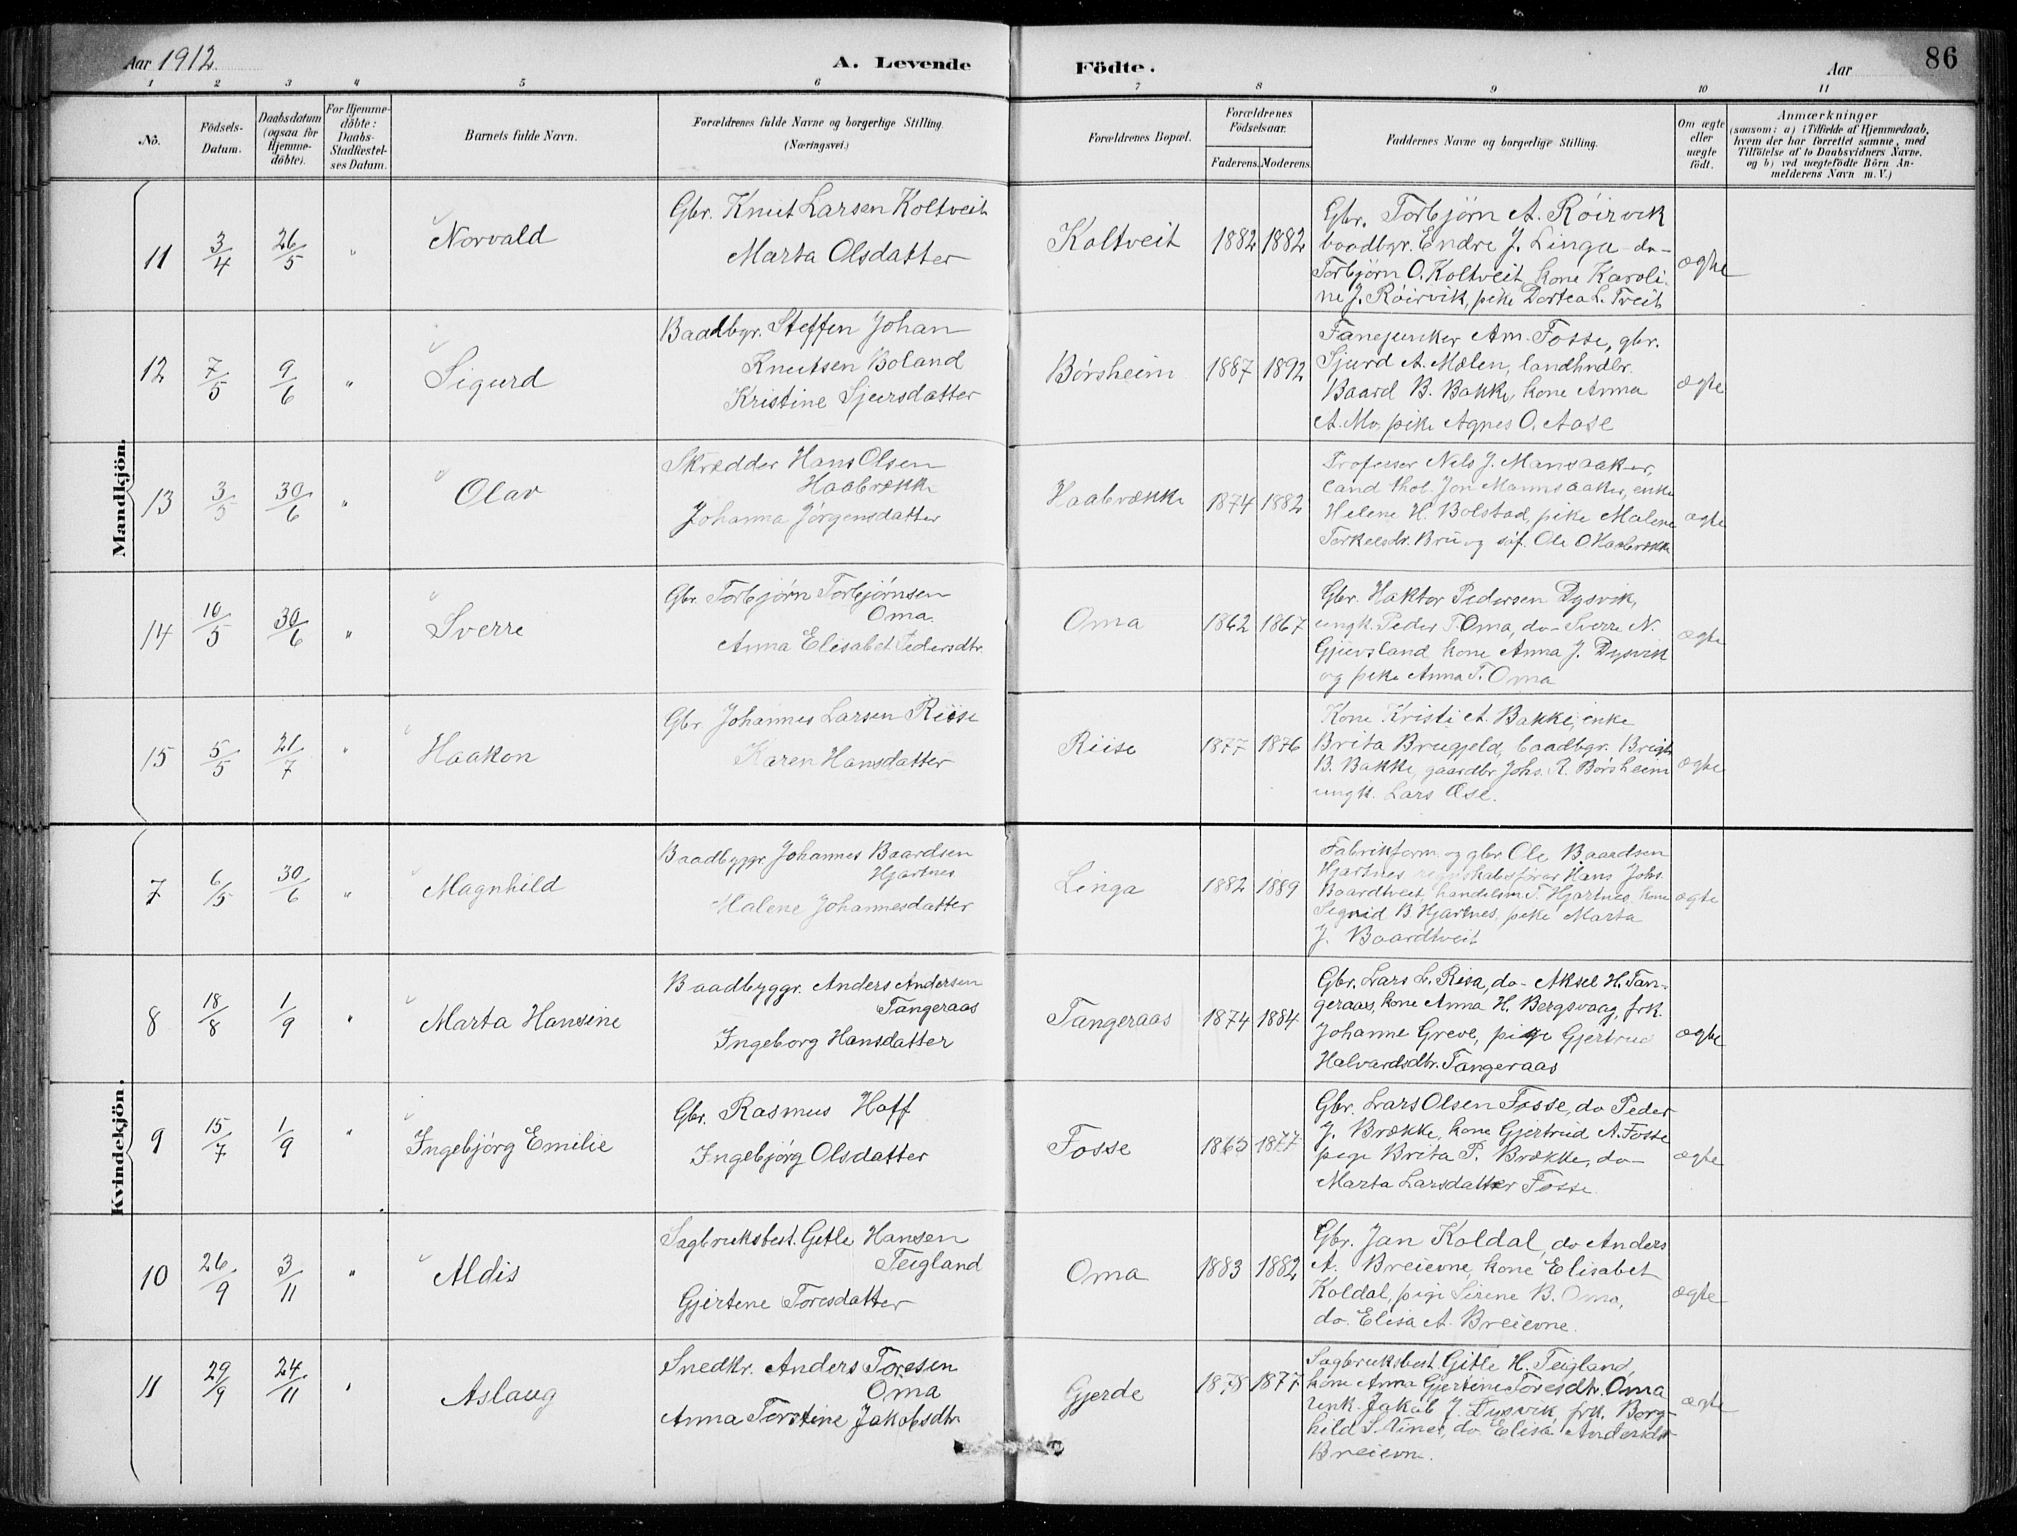 Aar 1912. A. Levende Födte. Aar 86
1 2 3 4 5 6 7 8 9 10 11
No. Födsels-Datum. Daabsdatum (ogsaa for Hjemme-döbte). For Hjemme-döbte: Daabs-Stadfæstel-ses Datum. Barnets fulde Navn. Forældrenes fulde Navne og borgerlige Stilling. (Næringsvei.) Forældrenes Bopæl. Forældrenes Födselsaar. Faderens. Moderens. Faddernes Navne og borgerlige Stilling. Om ægte eller uægte födt. Anmærkninger (saasom: a) i Tilfælde af Hjemmedaab, hvem der har forrettet samme, med Tilföielse af to Daabsvidners Navne, og b) ved uægtefödte Börn An-melderens Navn m. V.)
Mandkjön.
11 3/4 26/5 " Norvald
Gbr. Knut Larsen Koltveit
Marta Olsdatter
Koltveit 1882 1882
Gbr. Torbjørn A. Røirvik
baadbgr. Endre J. Linga do-
Torbjørn O. Koltveit, kone Karoli-
ne J. Røirvik, pike Dortea L. Tveit
ægte
12 7/5 9/6 " Sigurd
Baadbgr. Steffen Johan
Knutsen Boland
Kristine Sjursdatter
Børsheim 1887 1892
Fanejunker Am. Fosse, gbr.
Sjurd A. Mælen, landhndlr.
Baard B. Bakke, kone Anna
A. Mo, pike Agnes O. Aase
ægte
13 3/5 30/6 " Olav
Skrædder Hans Olsen
Haabrække
Johanna Jørgensdatter
Haabrække 1874 1882
Professer Nels J. Mansaaker,
cand. theol. Jon Mannsaaker, enke
Helene H. Bolstad, pike Malene
Torkelsdr. Bru og Ole O. Haabrække
ægte
14 10/5 30/6 " Sverre
Gbr. Torbjørn Torbjørnsen
Oma.
Anna Elisabet Pedersdtr.
Oma 1862 1867
Gbr. Haktor Pedersen Dysvik,
ungk. Peder T. Oma, do- Sverre N.
Gjuvsland kone Anna J. Dysvik
og pike Anna T. Oma
ægte
15 5/5 21/7 " Haakon
Gbr Johannes Larsen Riise
Karen Hansdatter
Riise 1877 1876
Kone Kristi A. Bakke, enke
Brita Brugjeld, baadbgr. Brigt
B. Bakke, gaardbr Johs. R. Børsheim
ungk. Lars Øse.
ægte
Kvindekjön.
7 6/5 30/6 " Magnhild
Baadbyggr. Johannes Baardsen
Hjartnes
Malene Johannesdatter
Linga 1882 1889
Fabrikform. og gbr. Ole Baardsen
Hjartnes regnskabsfører Hans Johs.
Baardtveit, handelsm. T. Hjartnes, kone
Signid B. Hjartnes, pike Marta
J. Baardtveit
ægte
8 18/8 1/9 " Marta Hansine
Baadbyggr. Anders Andersen
Tangeraas
Ingeborg Hansdatter
Tangeraas 1874 1884
Gbr. Lars L. Risa, do- Aksel H. Tan-
geraas, kone Anna H. Bergsvaag, frk.
Johanne Greve, pige Gjertrud
Halvardsdtr. Tangeraas
ægte
9 15/7 1/9 " Ingebjørg Emilie
Gbr. Rasmus Hoff
Ingebjørg Olsdatter
Fosse 1865 1877
Gbr. Lars Olsen Fosse, do Peder
J. Brække, kone Gjertrud A. Fosse
pige Brita P. Brække, do-
Marta Larsdatter Fosse.
ægte
10 26/9 3/11 " Aldis
Sagbruksbest. Gitle Hansen
Teigland
Gjertine Toresdatter
Oma 1883 1882
Gbr. Jan Koldal, do Anders
A. Breievne, kone Elisabet
Koldal, pige Sirine B. Oma,
do. Elisa A. Breievne.
ægte
11 29/9 24/11 " Aslaug
Snedkr. Anders Toresen
Oma
Anna Torstine Jakobsdtr
Gjerde 1878 1877
Sagbruksbest. Gitle H. Teigland,
kone Anna Gjertine Toresdtr. Oma
unk. Jakob J. Dysvik, frk. Borg-
hild S. Nines, do. Elisa Andersdtr
Breievn.
ægte